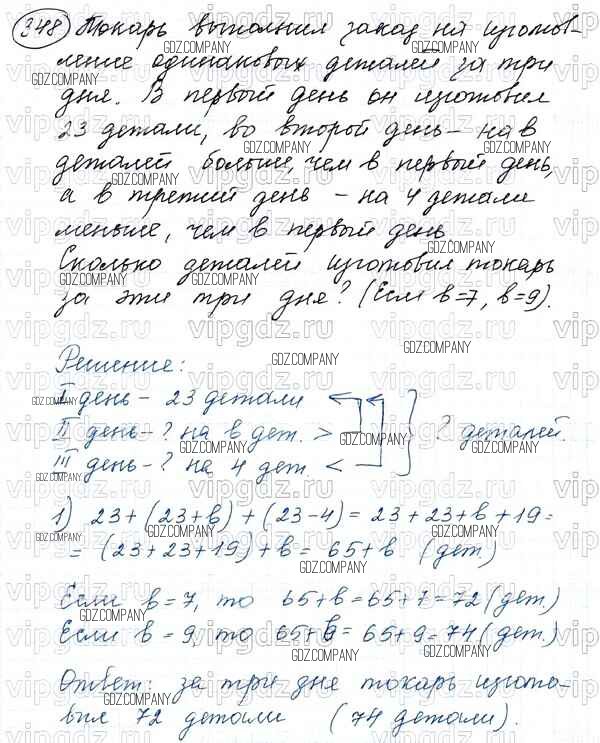 348) Токарь выполнил заказ на изготов-
ление одинаковых деталей за три
дня. В первый день он изготовил
23 детали, во второй день - на b
деталей больше, чем в первый день,
а в третий день - на 4 детали
меньше, чем в первый день
Сколько деталей изготовил токарь
за эти три дня? (Если b=7, b=9).
Решение:
I день - 23 детали
II день - ? на b дет. > ? деталей.
III день - ? на 4 дет. <
1) 23+(23+b)+(23-4)=23+23+b+19=
=(23+23+19)+b=65+b (дет)
Если b=7, то 65+b=65+7=72(дет.)
Если b=9, то 65+b=65+9=74(дет.)
Ответ: за три дня токарь изгото-
вил 72 детали (74 детали).
vipgdz.ru
GDZ.COMPANY